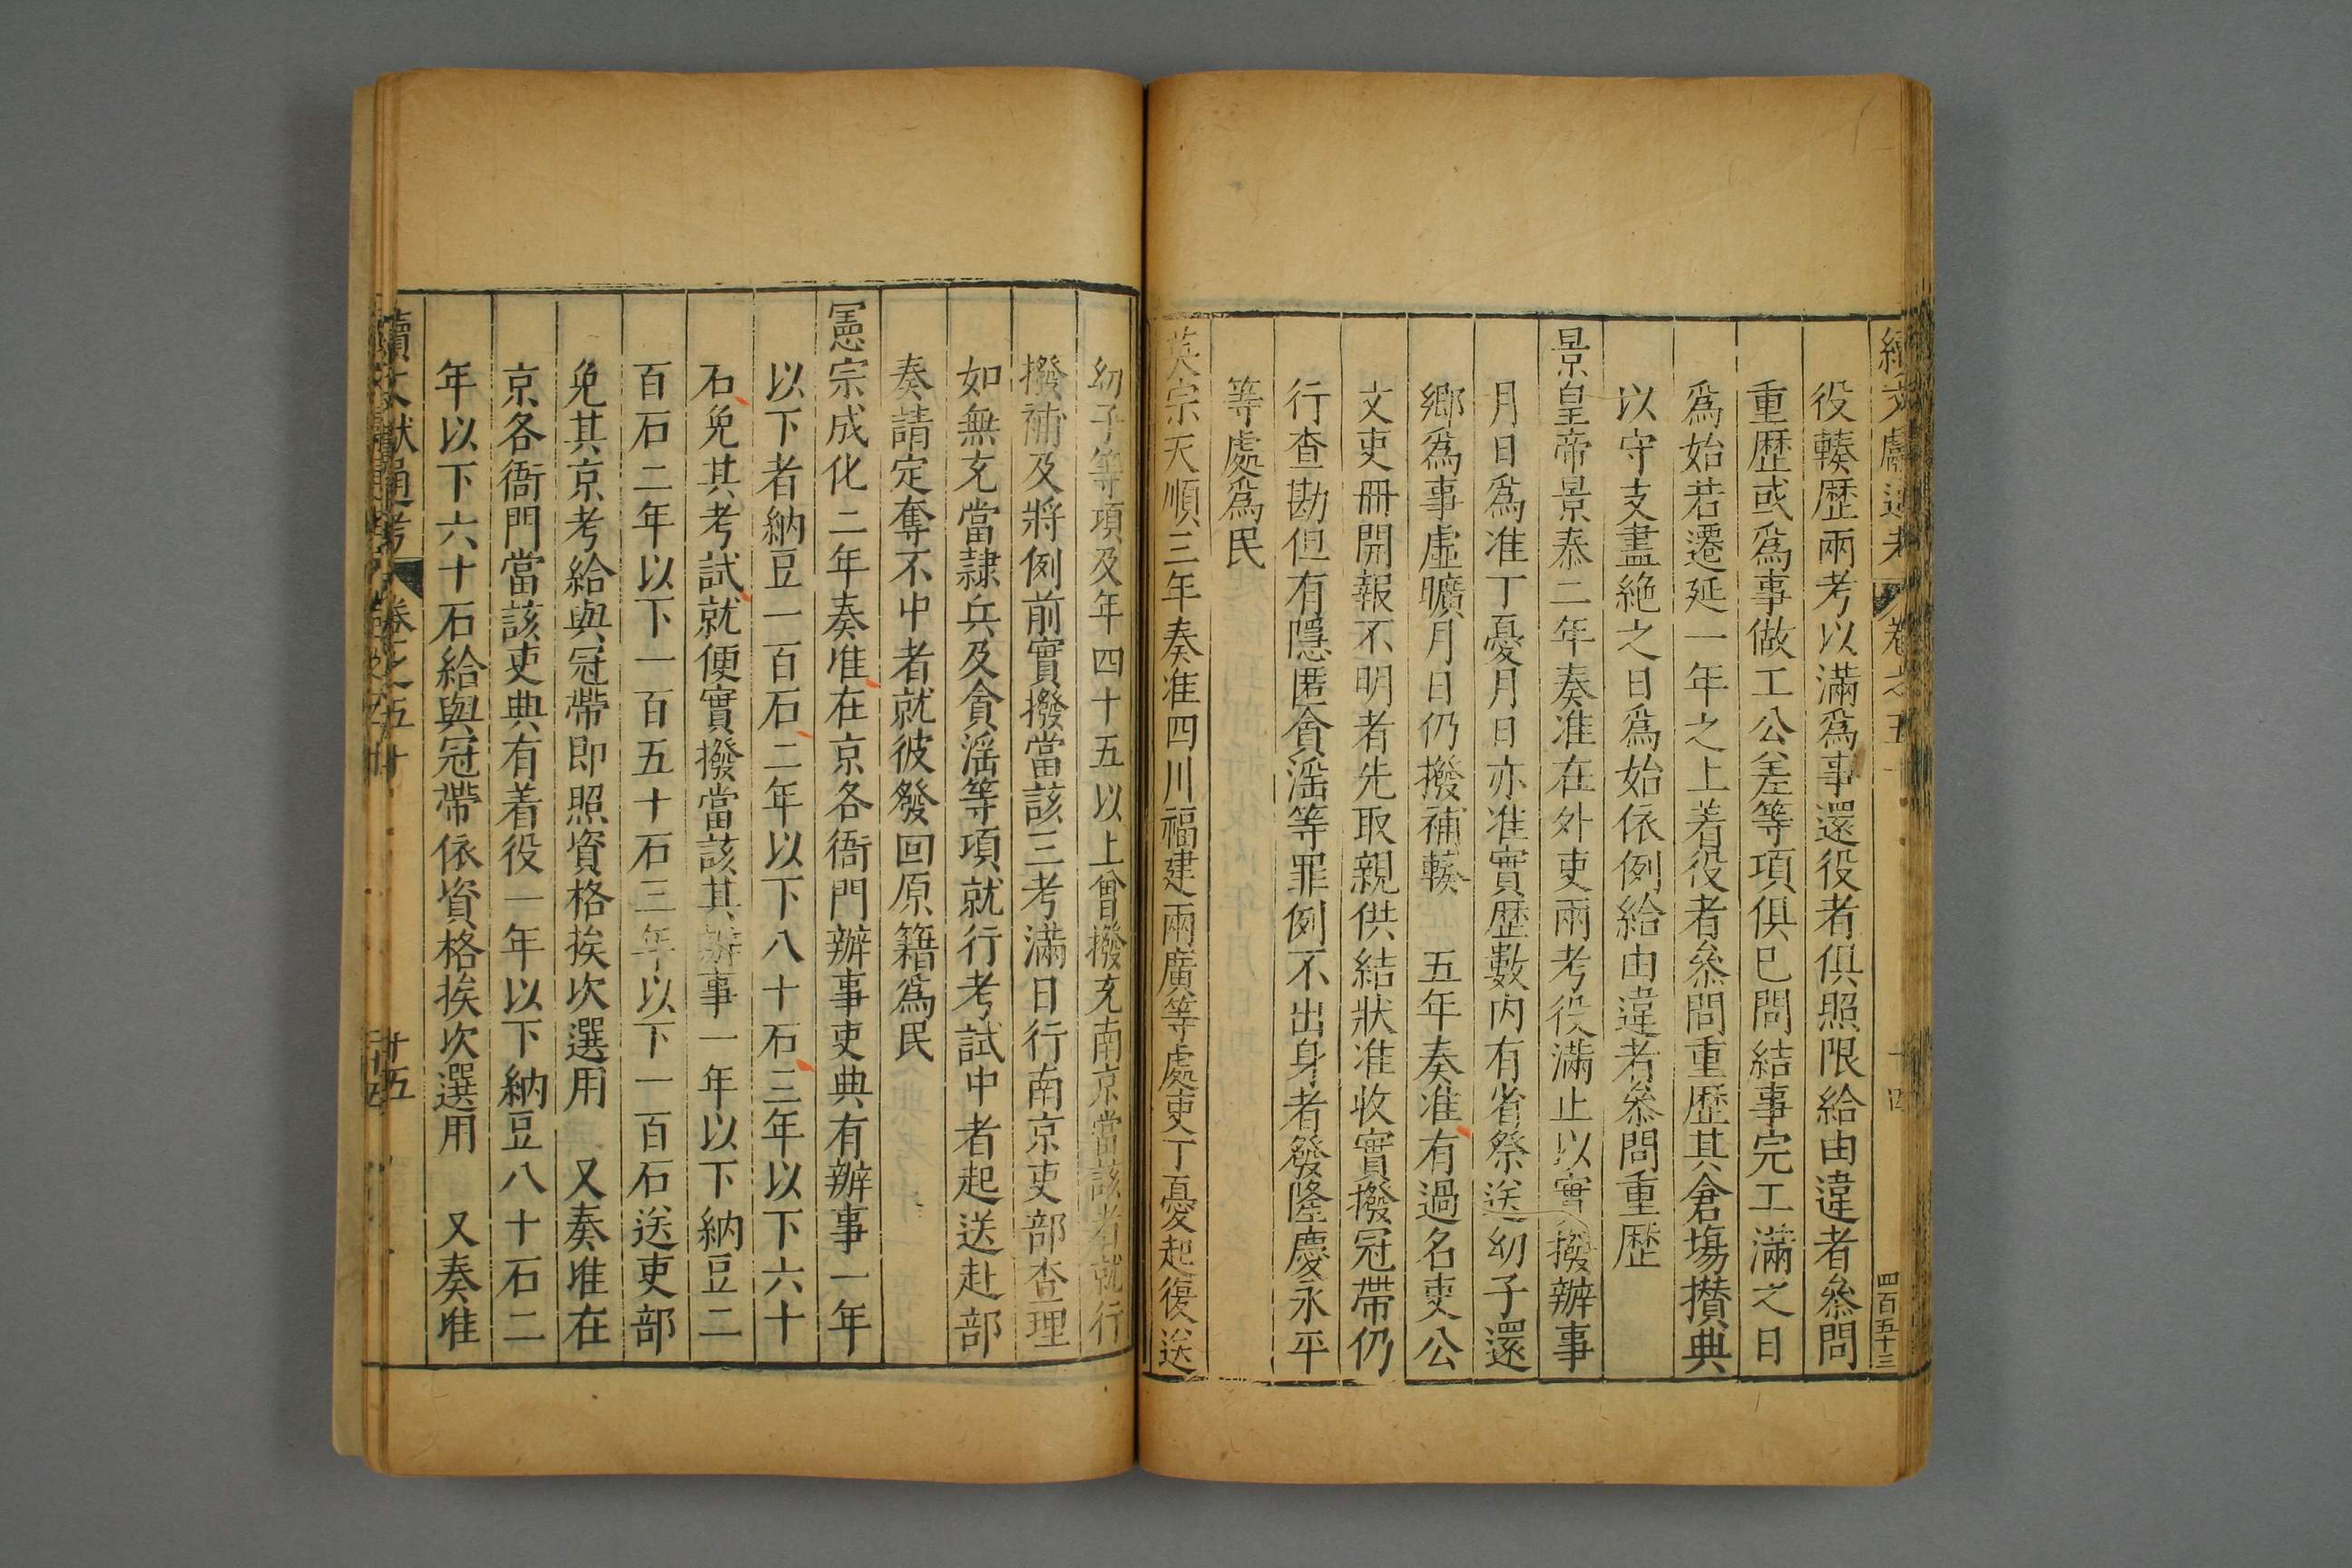 續文獻通考 卷之五十 十四 四百五十三
役轃歴兩考以滿爲事還役者俱照限給由違者叅問
重歴或爲事做工公差等項俱已問結事完工滿之日
爲始若遷延一年之上着役者叅問重歴其倉塲攅典
以守支盡絶之日爲始依例給由違者叅問重歴
景皇帝景泰二年奏准在外吏兩考役滿止以實撥辦事
月日爲准丁憂月日亦准實歴數内有省祭送幼子還
鄉爲事虛曠月日仍撥補轃 五年奏准有過名吏公
文吏冊開報不明者先取親供結狀准收實撥冠帶仍
行查勘但有隱匿貪滛等罪例不出身者發隆慶永平
等處爲民
英宗天順三年奏准四川福建兩廣等處吏丁憂起復送
幼子等項及年四十五以上曾撥充南京當該者就行
撥補及將例前實撥當該三考滿日行南京吏部查理
如無充當隷兵及貪滛等項就行考試中者起送赴部
奏請定奪不中者就彼發回原籍爲民
憲宗成化二年奏准在京各衙門辦事吏典有辦事一年
以下者納豆一百石二年以下八十石三年以下六十
石免其考試就便實撥當該其辦事一年以下納豆二
百石二年以下一百五十石三年以下一百石送吏部
免其京考給與冠帶即照資格挨次選用 又奏准在
京各衙門當該吏典有着役一年以下納豆八十石二
年以下六十石給與冠帶依資格挨次選用 又奏准
續文獻通考 卷之五十 十五